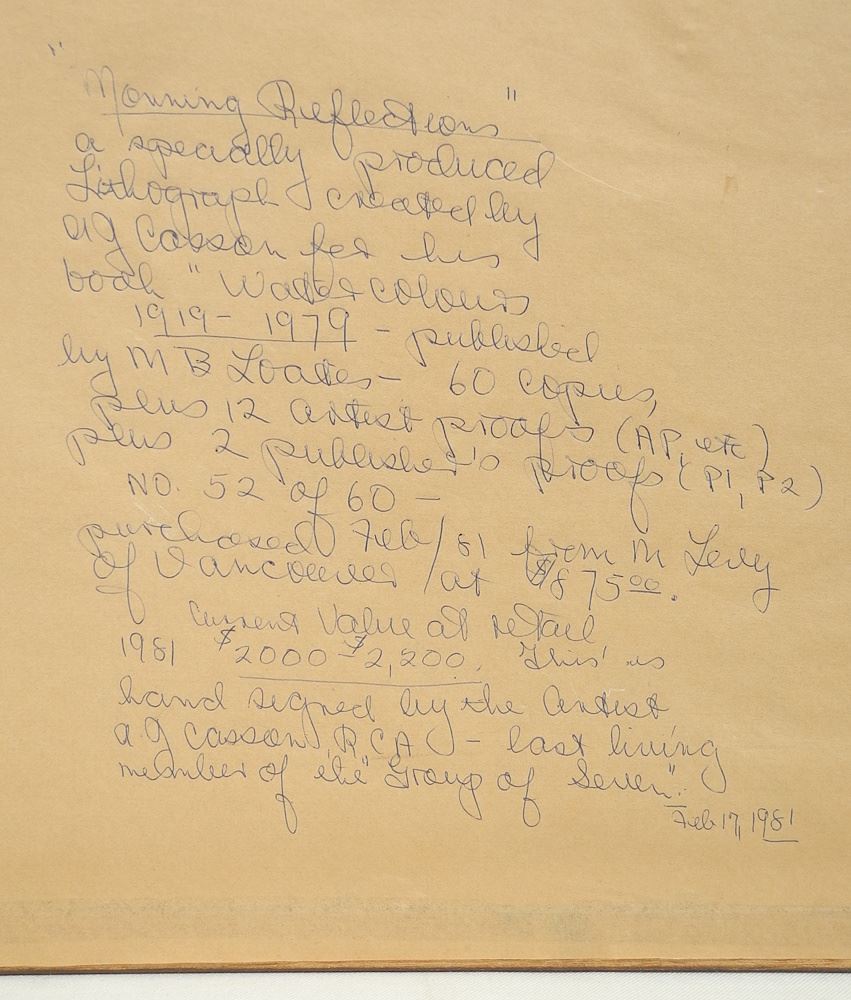 "Morning Reflections"
a specially produced
Lithograph created by
AG Casson for his
book "Watercolours
1919 - 1979 - published
by M B Loates - 60 copies,
plus 12 artist proofs (AP, etc)
plus 2 publisher's proofs (P1, P2)
NO. 52 of 60 -
purchased Feb/81 from M Levy
of Vancouver / at $875.00.
Current Value at retail
1981 $2000 - $2,200. This is
hand signed by the Artist
A.G Casson, RCA - last living
member of the "Group of Seven".
Feb 17, 1981